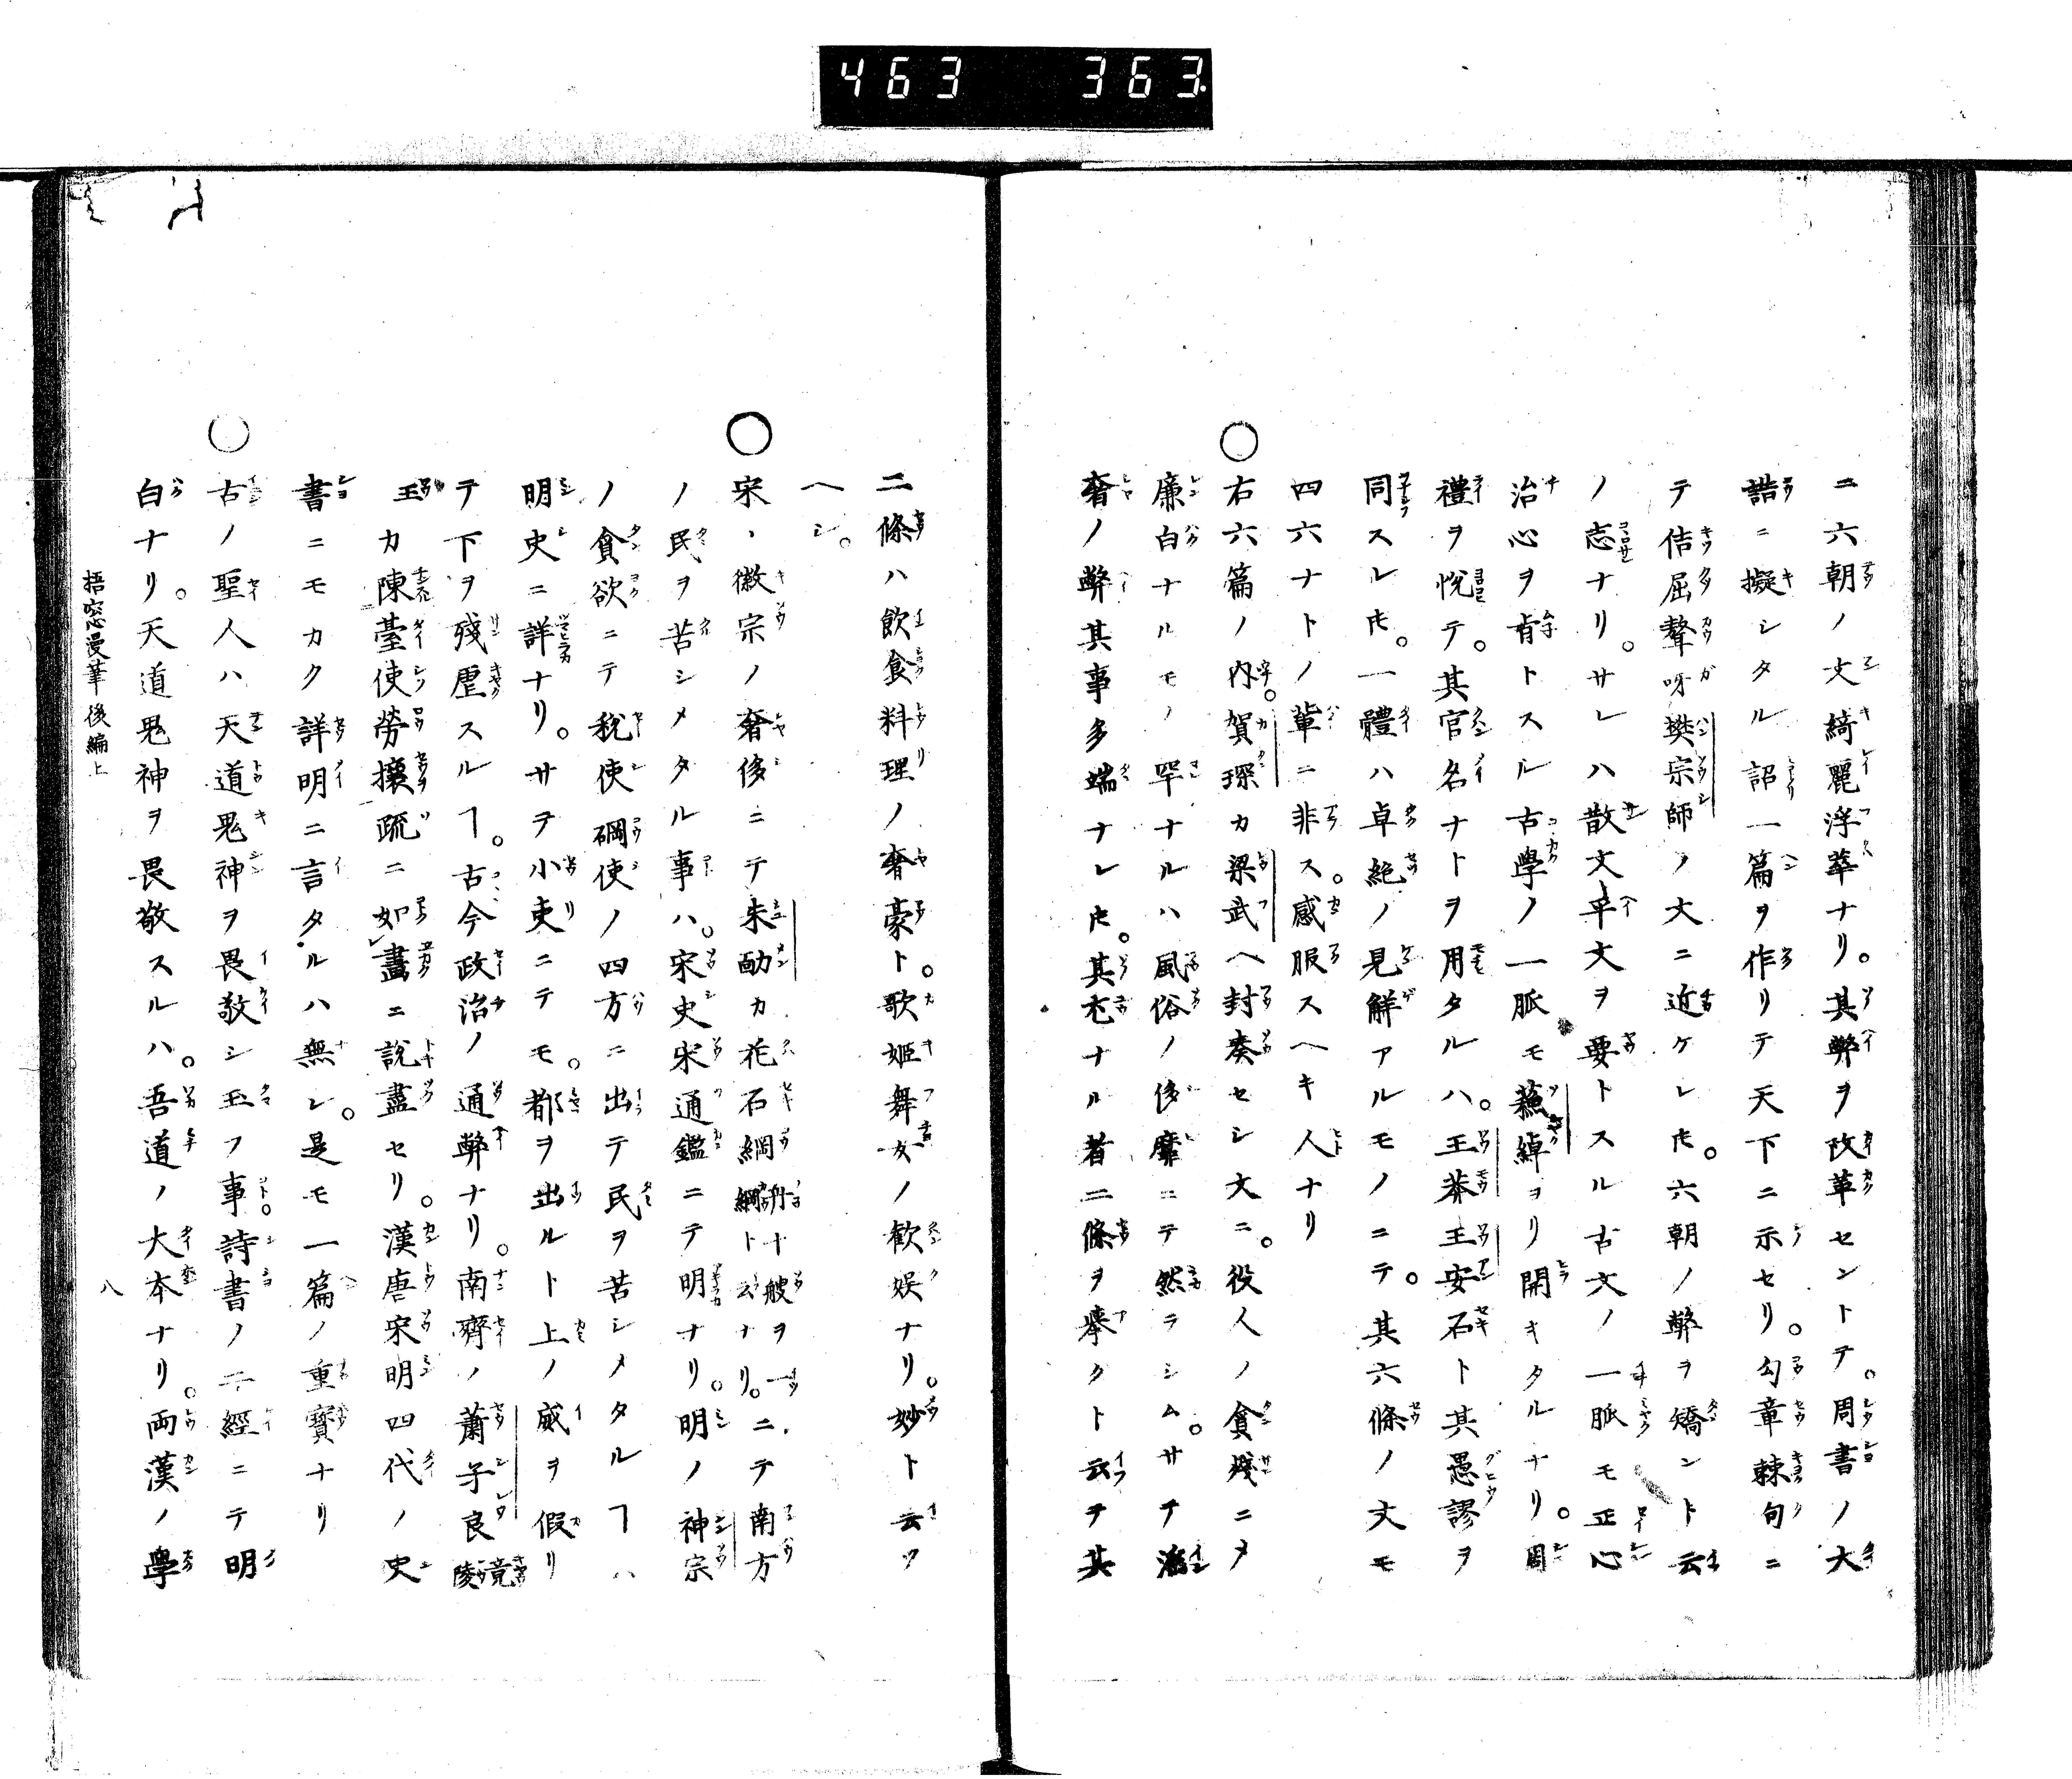 463 363
ニ六朝ノ文綺麗浮華ナリ。其弊ヲ改革セントテ。周書ノ大
誥ニ擬シタル詔一篇ヲ作リテ天下ニ示セリ。勾章棘句ニ
テ佶屈聱呀樊宗師ノ文ニ近ケレ𪜈。六朝ノ弊ヲ矯ント云
ノ志ナリ。サレハ散文平文ヲ要トスル古文ノ一脈モ正心
治心ヲ旨トスル古學ノ一脈モ蘓綽ヨリ開キタルナリ。周
禮ヲ悅テ。其官名ナトヲ用タルハ。王莽王安石ト其愚謬ヲ
同スレ𪜈。一體ハ卓絶ノ見觧アルモノニテ。其六條ノ文モ
四六ナトノ輩ニ非ス。感服スヘキ人ナリ
〇右六篇ノ内。賀琛カ梁武ヘ封奏セシ文ニ。役人ノ貪殘ニメ
廉白ナルモノ罕ナルハ風俗ノ侈靡ニテ然ラシム。サテ淫
奢ノ弊其事多端ナレ𪜈。其尤ナル者二條ヲ擧クト云テ其
二條ハ飲食料理ノ奢豪ト。歌姬舞女ノ歡娯ナリ。妙ト云ツ
ヘシ。
〇宋ノ徽宗ノ奢侈ニテ朱勔カ花石綱舟十艘ヲ一綱ト云ナリ。ニテ南方
ノ民ヲ苦シメタル事ハ。宋史宋通鑑ニテ明ナリ。明ノ神宗
ノ貪欲ニテ税使礀使ノ四方ニ出テ民ヲ苦シメタルヿハ
明史ニ詳ナリ。サテ小吏ニテモ。都ヲ出ルト上ノ威ヲ假リ
テ下ヲ殘虐スルヿ。古今政治ノ通弊ナリ。南齊ノ蕭子良竟陵
王カ陳臺使勞擾疏ニ如畫ニ說盡セリ。漢唐宋明四代ノ史
書ニモカク詳明ニ言タルハ無シ。是モ一篇ノ重寶ナリ
〇古ノ聖人ハ天道鬼神ヲ畏敬シ玉フ事。詩書ノ二經ニテ明
白ナリ。天道鬼神ヲ畏敬スルハ。吾道ノ大本ナリ。両漢ノ學
梧窓漫筆後編上
八